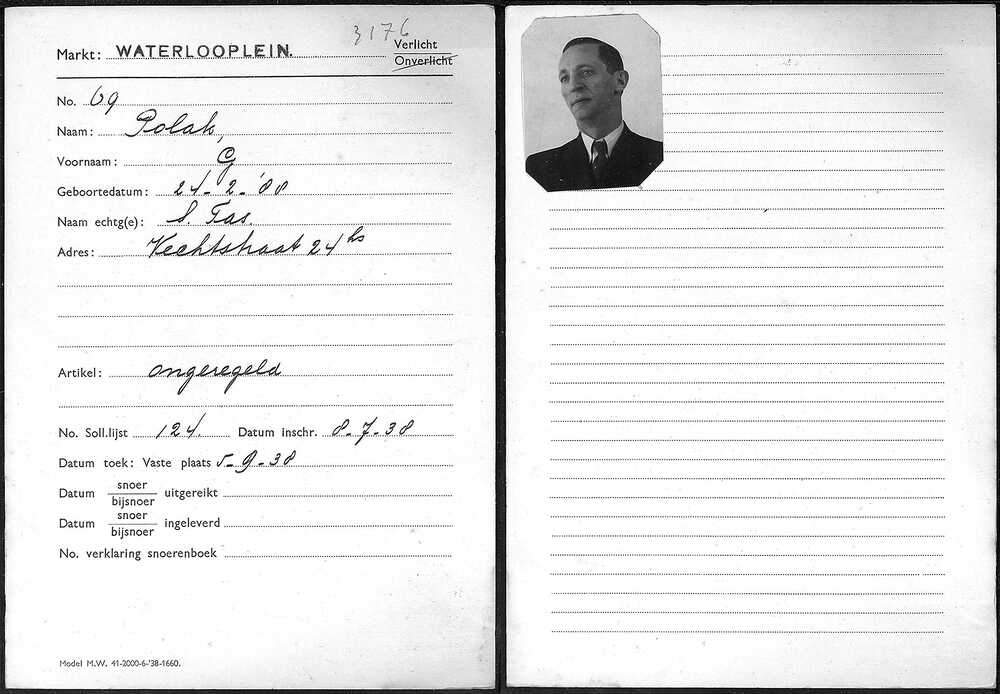 3176
Markt: WATERLOOPLEIN.
Verlicht
Onverlicht
No. 69
Naam: Polak,
Voornaam: G
Geboortedatum: 24-2-'88
Naam echtg(e): S. Tas.
Adres: Vechtstraat 24 hs
Artikel: ongeregeld
No. Soll.lijst 124. Datum inschr. 8-7-38
Datum toek: Vaste plaats 5-9-38
Datum snoer/bijsnoer uitgereikt
Datum snoer/bijsnoer ingeleverd
No. verklaring snoerenboek
Model M.W. 41-2000-6-'38-1660.